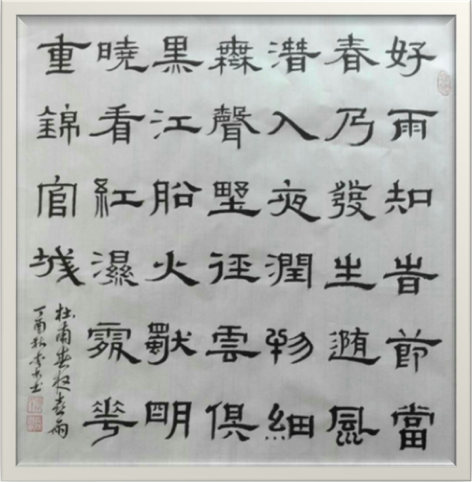 好雨知旹節當
春乃發生隨風
潛入夜潤物細
無聲野徑雲俱
黑江船火獨明
曉看紅濕處花
重錦官城
杜甫春夜喜雨
丁酉秋